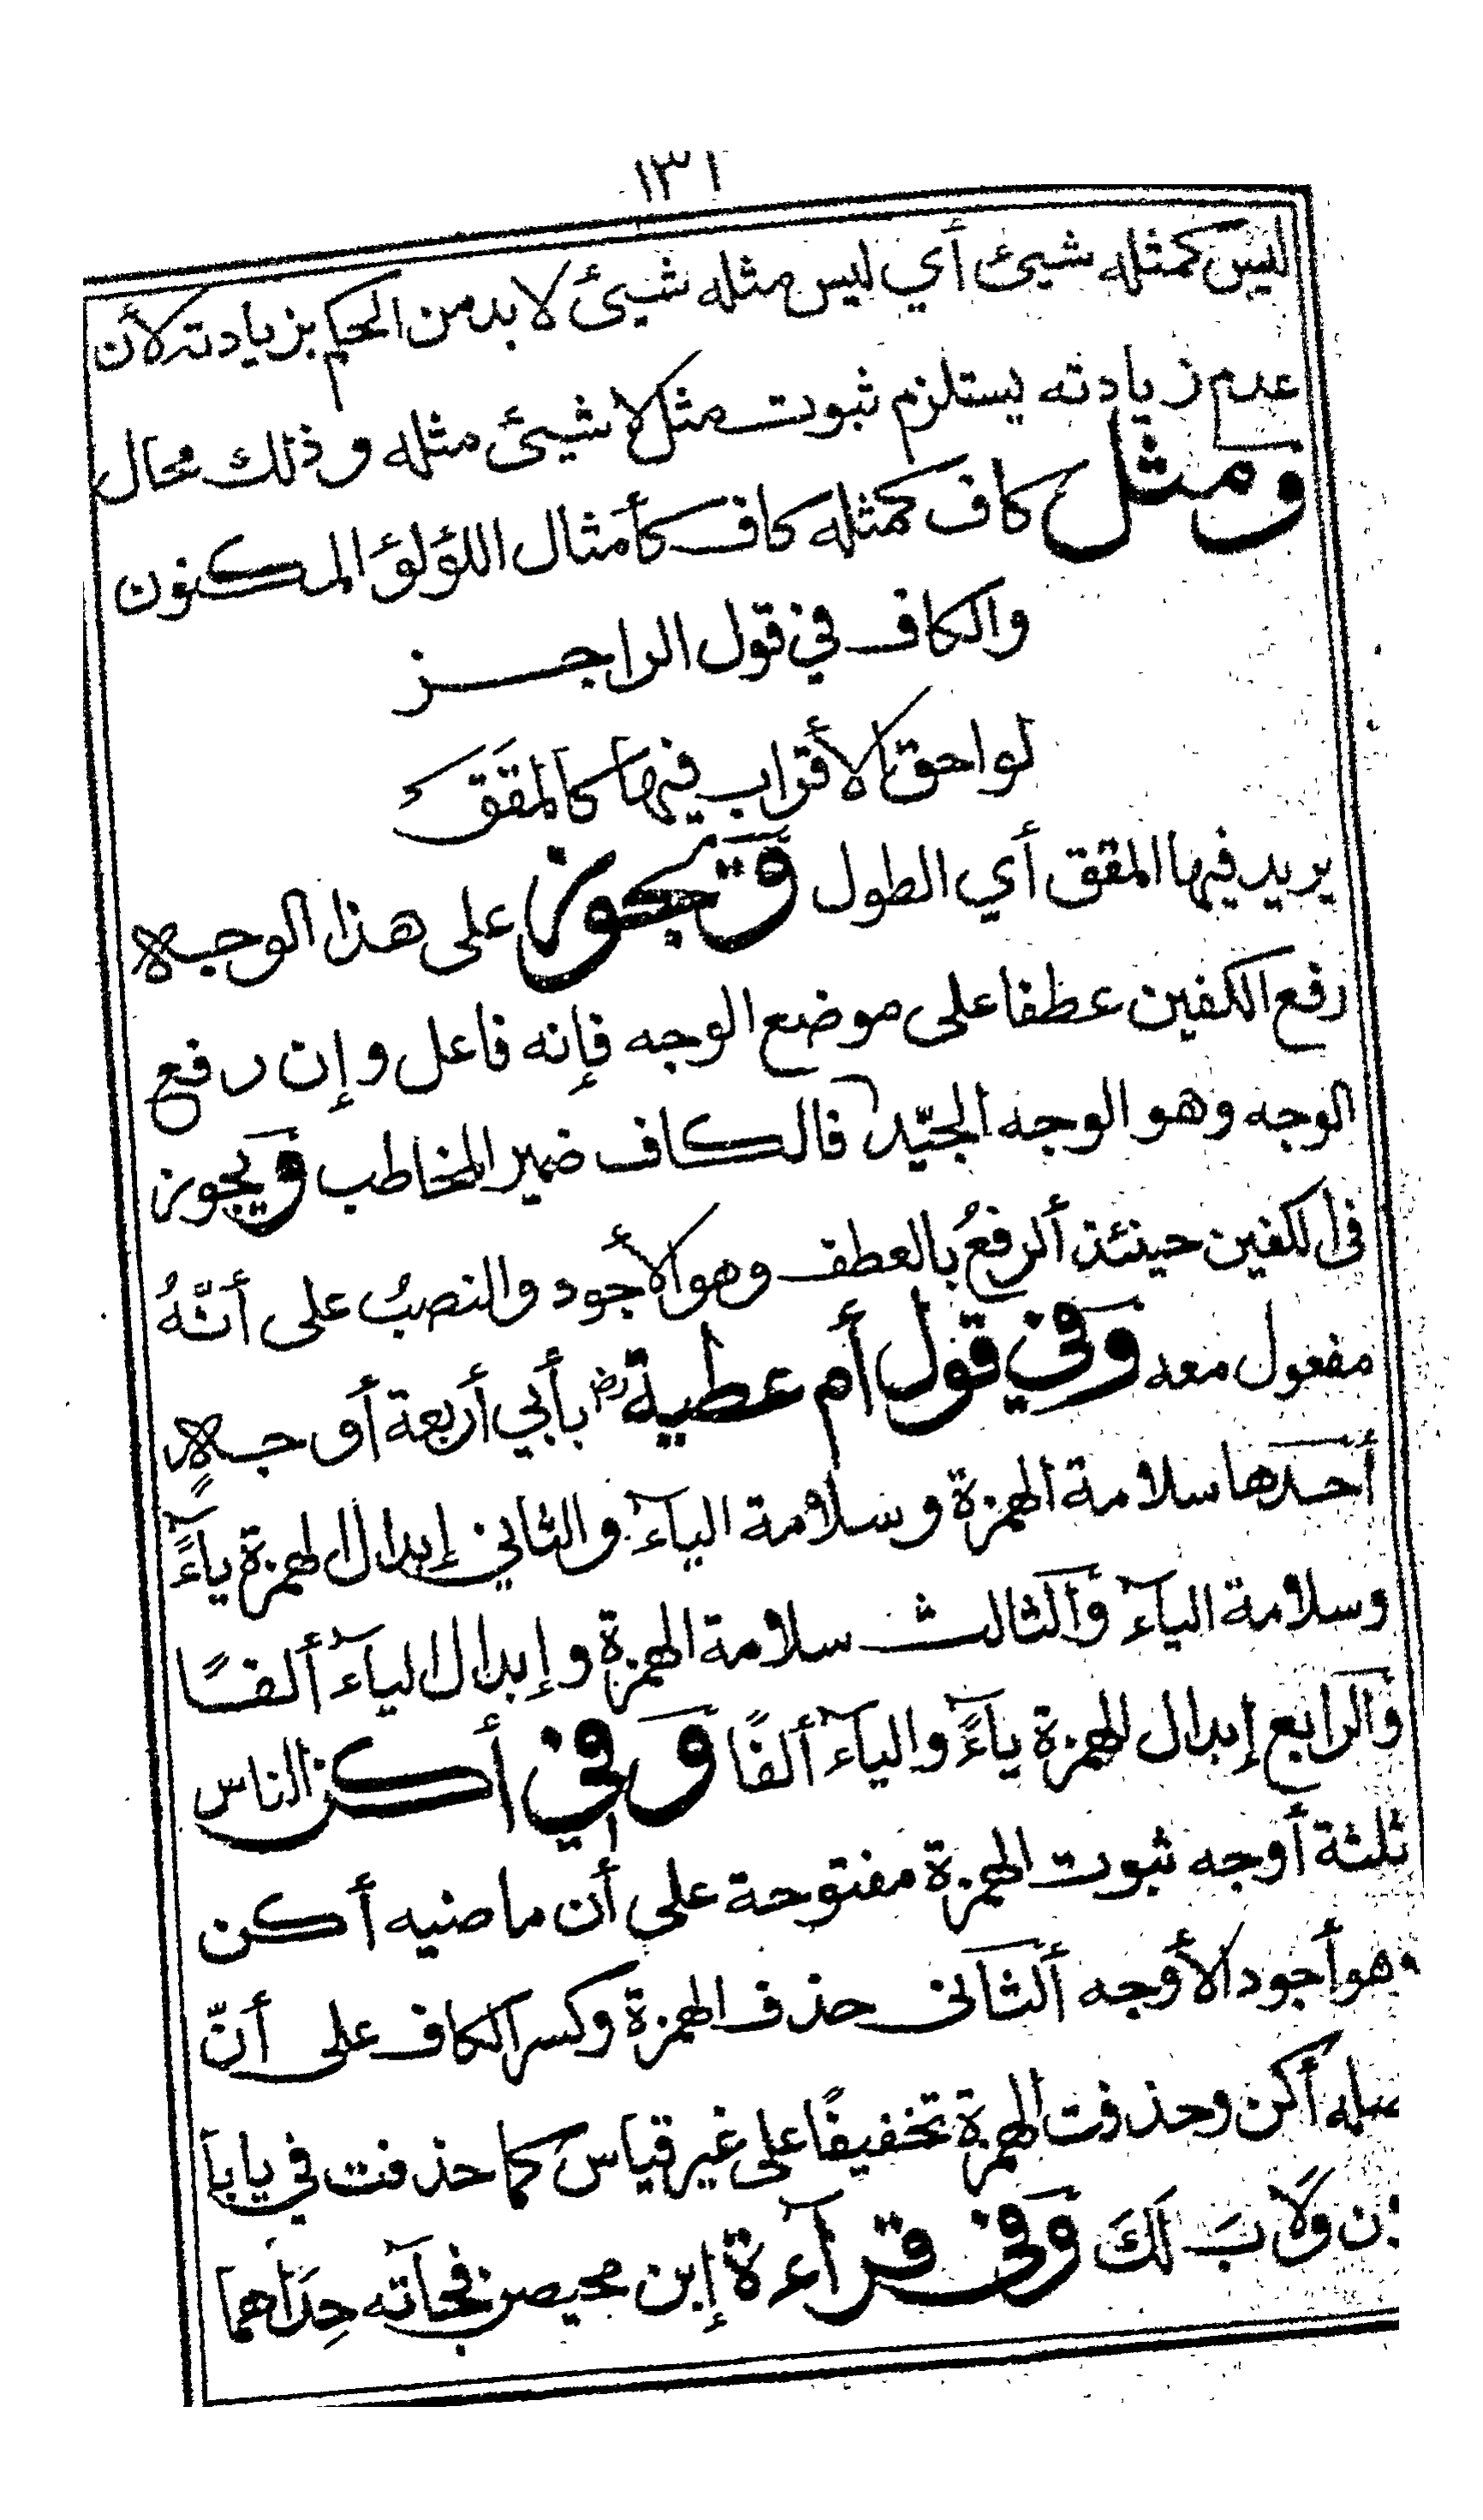 ١٣١
ليس كمثله شيئ أي ليس مثله شيئ لا بد من الحكم بزيادته لأن
عدم زيادته يستلزم ثبوت مثل لا شيئ مثله وذلك محال
ومثل كاف كمثله كاف كأمثال اللؤلؤ المكنون
والكاف في قول الراجز
لواحق الأقراب فيها كالمقق
يريد فيها المقق أي الطول وتجوز على هذا الوجه
رفع الكفين عطفا على موضع الوجه فإنه فاعل وإن رفع
الوجه وهو الوجه الجيّد فالكاف ضمير المخاطب ويجوز
فى الكفين حينئذ ألرفعُ بالعطف وهو الأجود والنصبُ على أنّهُ
مفعول معه وفي قول أم عطية رض بأبي أربعة أوجهٍ
أحدها سلامة الهمزة وسلامة اليآء والثاني إبدال الهمزة ياءً
وسلامة اليآء وألثالث سلامة الهمزة وإبدال اليآء ألفًا
وألرابع إبدال الهمزة ياءً واليآء ألفًا وفي أكن الناس
ثلثة أوجه ثبوت الهمزة مفتوحة على أن ماضيه أكن
وهو أجود الأوجه ألثانى حذف الهمزة وكسر الكاف على أنّ
صله أكن وحذفت الهمزة تخفيفًا على غير قياس كما حذفت في يابا
ن ولاَبَ لَكَ وفى قرآءة إبن محيصن فجآته حِدَاهما